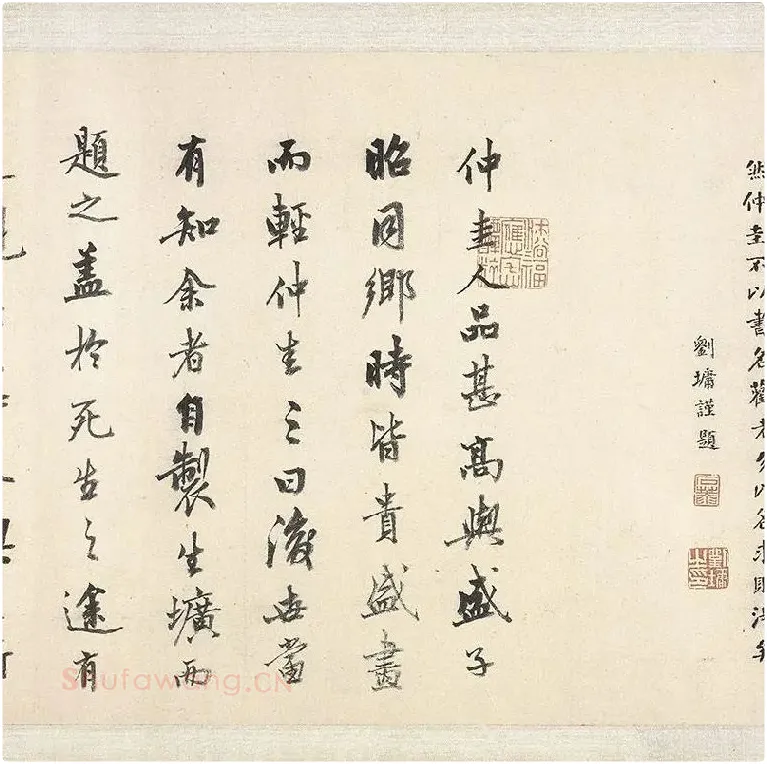 然仲圭不以書名觀者勿以名求則矣
劉墉謹題
石菴
仲圭人品甚高與盛子
昭同鄉時皆貴盛畫
而輕仲圭〻曰後世當
有知余者自製生壙而
題之蓋於死生之途有
Shufawang.CN